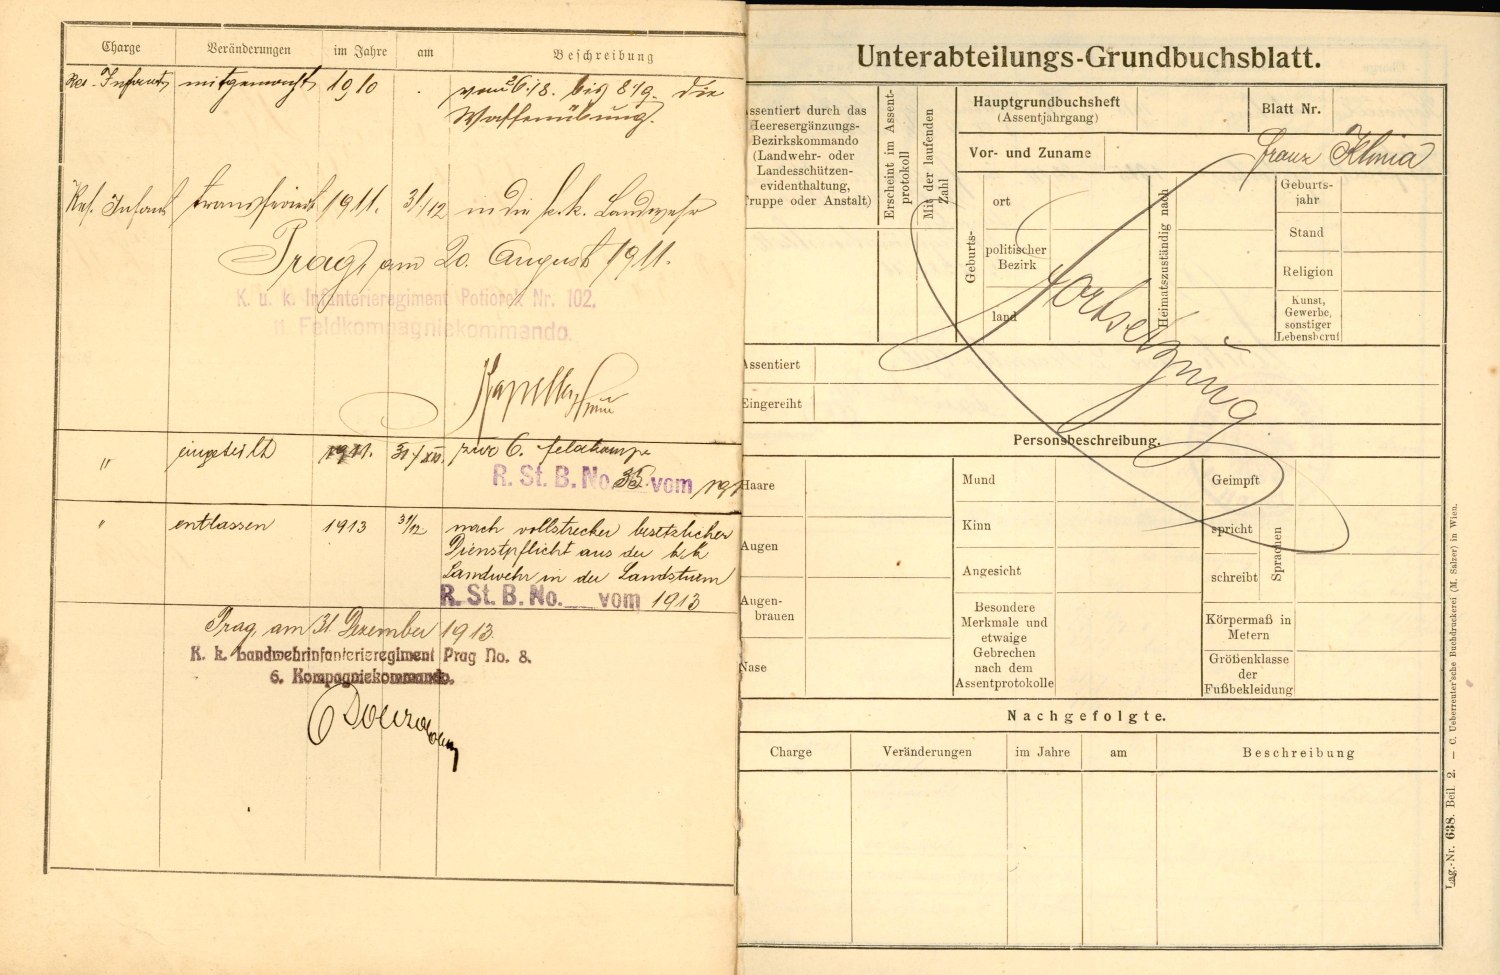 Charge Veränderungen im Jahre am Beschreibung
Res. Infant. mitgemacht 1910 . vom 26./8. bis 8./9. die
Waffenübung.
Res. Infant. transferiert 1911. 31./12 in die k. k. Landwehr
Prag, am 20. August 1911.
K. u. k. Infanterieregiment Potiorek Nr. 102.
11. Feldkompagniekommando.
" eingeteilt 1911. 31./XII. zur 6. Feldkomp.
R. St. B. No. 35. vom 191
" entlassen 1913 31/12. nach vollstreckter gesetzlicher
Dienstpflicht aus der k. k.
Landwehr in den Landsturm
R. St. B. No. vom 1913
Prag, am 31. Dezember 1913.
K. k. Landwehrinfanterieregiment Prag No. 8.
6. Kompagniekommando.
Unterabteilungs-Grundbuchsblatt.
ssentiert durch das
Heeresergänzungs-
Bezirkskommando
(Landwehr- oder
Landesschützen-
evidenthaltung,
Truppe oder Anstalt)
Erscheint im Assent-
protokoll
Mit der laufenden
Zahl
Hauptgrundbuchsheft
(Assentjahrgang)
Blatt Nr.
Vor- und Zuname
Franz Klimia
Geburts-
ort
politischer
Bezirk
land
Heimatszuständig nach
Geburts-
jahr
Stand
Religion
Kunst,
Gewerbe,
sonstiger
Lebensberuf
Fortsetzung
Assentiert
Eingereiht
Personsbeschreibung.
Haare
Augen
Augen-
brauen
Nase
Mund
Kinn
Angesicht
Besondere
Merkmale und
etwaige
Gebrechen
nach dem
Assentprotokolle
Geimpft
spricht
schreibt
Sprachen
Körpermaß in
Metern
Größenklasse
der
Fußbekleidung
Nachgefolgte.
Charge Veränderungen im Jahre am Beschreibung
Lag.-Nr. 638. Beil. 2. — C. Ueberreuter'sche Buchdruckerei (M. Salzer) in Wien.